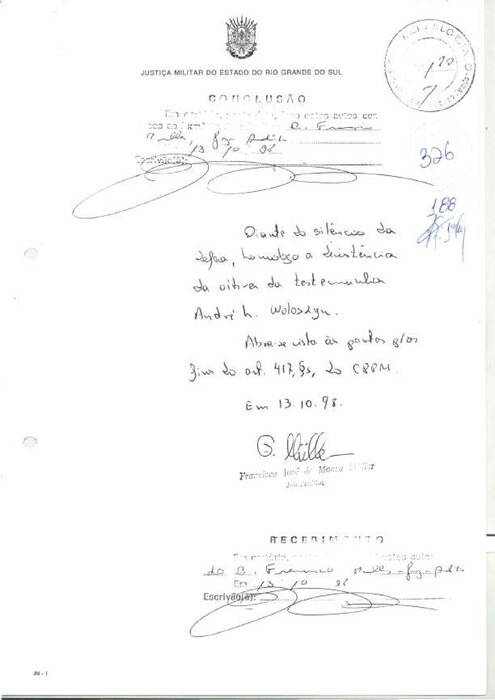 JUSTIÇA MILITAR DO ESTADO DO RIO GRANDE DO SUL
CONCLUSÃO
Em cartório, faço estes autos con
13 10 98
Escrivão(ã):
326
188
Diante do silêncio da
defesa, homologo a desistência
da oitiva da testemunha
André L. Woloszyn.
Abra-se vista às partes p/os
fins do art. 417, §5, do CPPM.
Em 13.10.98.
Francisco José de Moura Müller
RECEBIMENTO
Em cartório, estes autos
do
Em 13 10 98
Escrivão(ã):
JM - 1